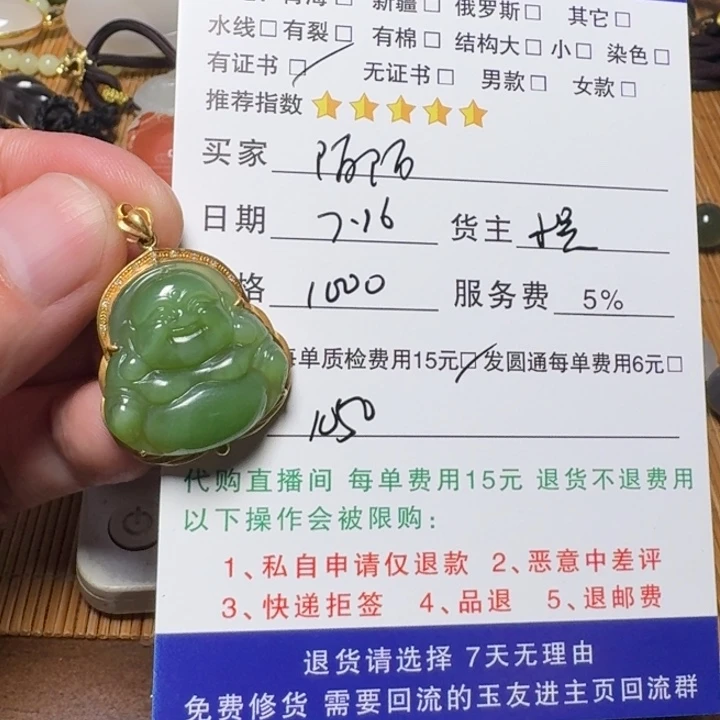 新疆□ 俄罗斯□ 其它□
水线□ 有裂□ 有棉□ 结构大□ 小□ 染色□
有证书□ 无证书□ 男款□ 女款□
推荐指数
买家 陌陌
日期 7.16 货主
格 1000 服务费 5%
单质检费用15元□ 发圆通每单费用6元□
1050
代购直播间 每单费用15元 退货不退费用
以下操作会被限购:
1、私自申请仅退款 2、恶意中差评
3、快递拒签 4、品退 5、退邮费
退货请选择 7天无理由
免费修货 需要回流的玉友进主页回流群